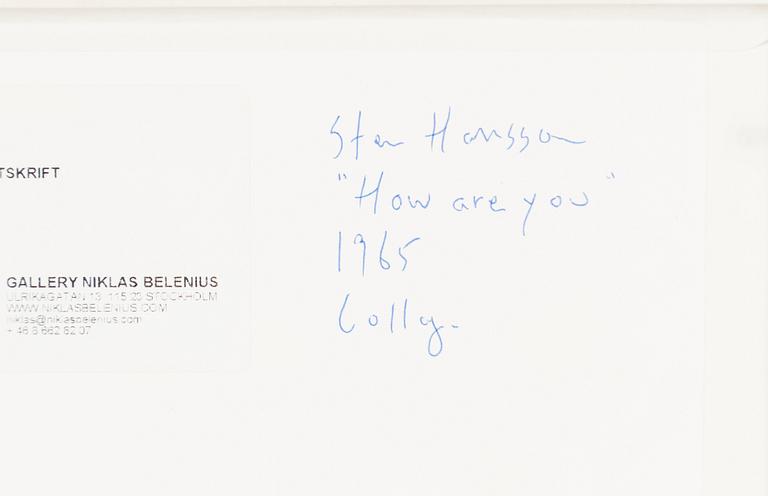 TSKRIFT
GALLERY NIKLAS BELENIUS
ULRIKAGATAN 13 115 23 STOCKHOLM
WWW.NIKLASBELENIUS.COM
niklas@niklasbelenius.com
+ 46 8 662 82 07
Sten Hansson
"How are you"
1965
Collg.